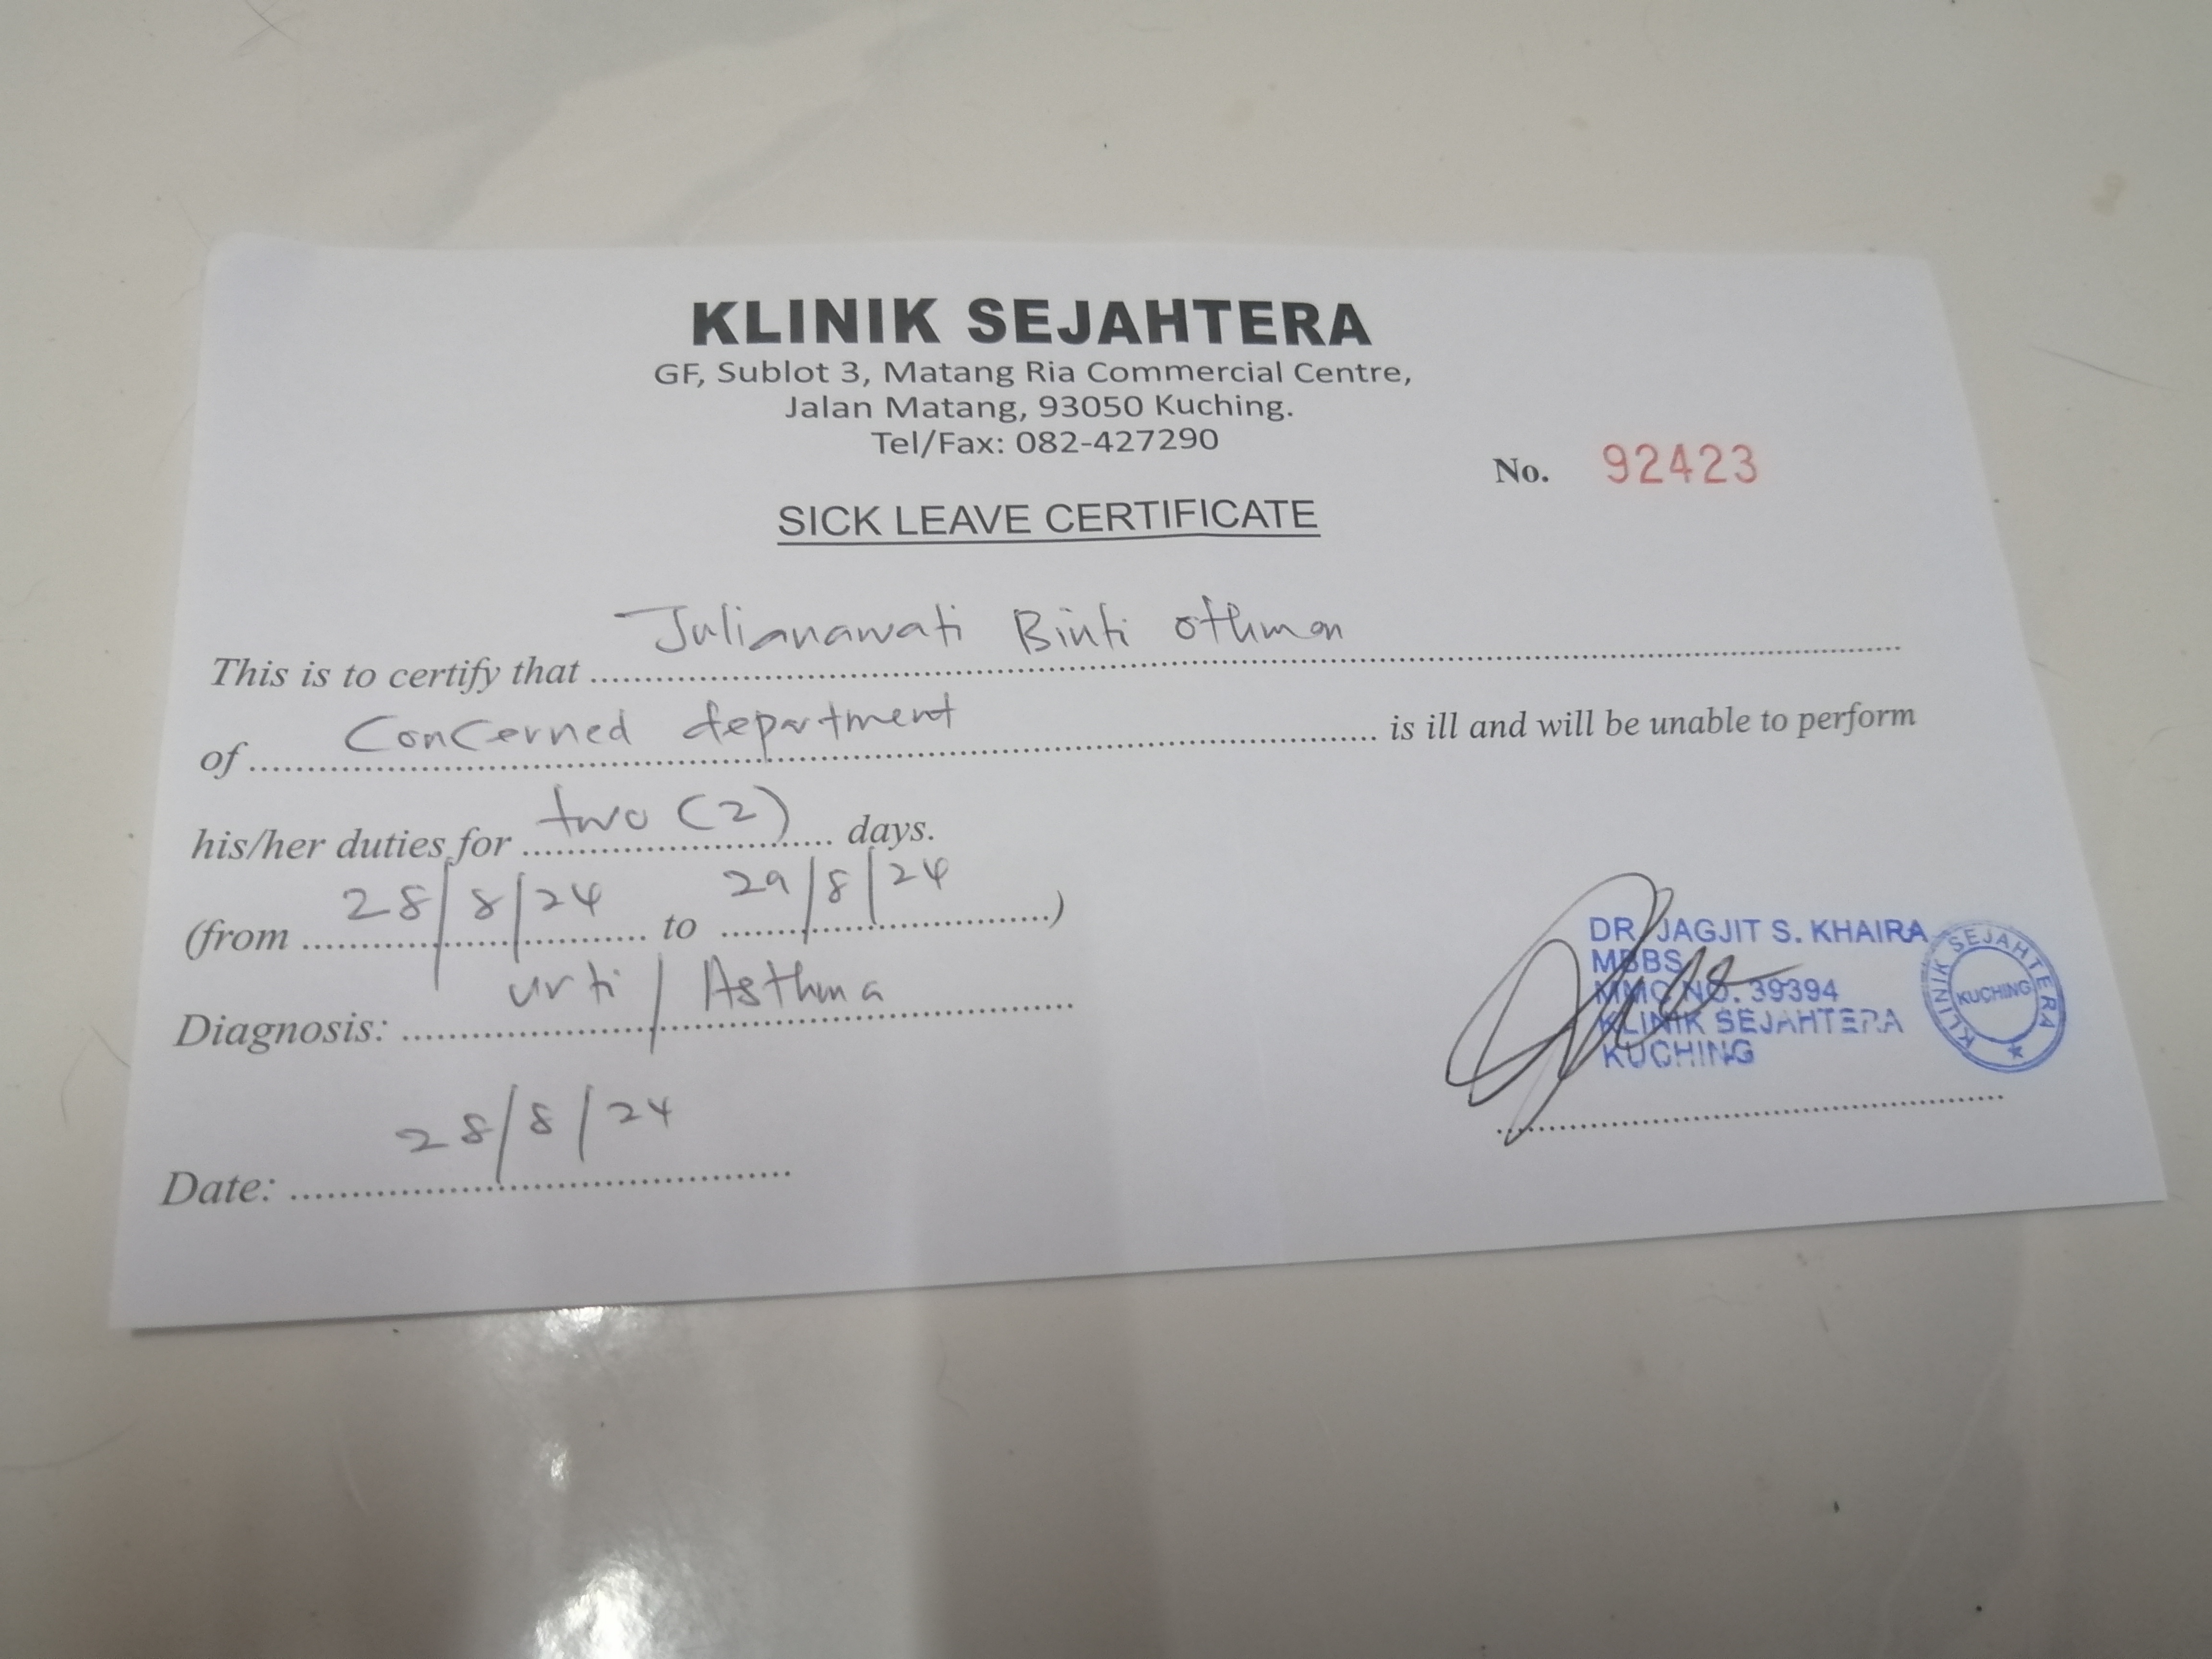 KLINIK SEJAHTERA
GF, Sublot 3, Matang Ria Commercial Centre,
Jalan Matang, 93050 Kuching.
Tel/Fax: 082-427290
No. 92423
SICK LEAVE CERTIFICATE
This is to certify that Julianawati Binti Othman
of Concerned department is ill and will be unable to perform
his/her duties for two (2) days.
(from 28/8/24 to 29/8/24)
Diagnosis: urti / Asthma
Date: 28/8/24
DR. JAGJIT S. KHAIRA
MBBS
MMC NO. 39394
KLINIK SEJAHTERA
KUCHING
KLINIK SEJAHTERA
KUCHING